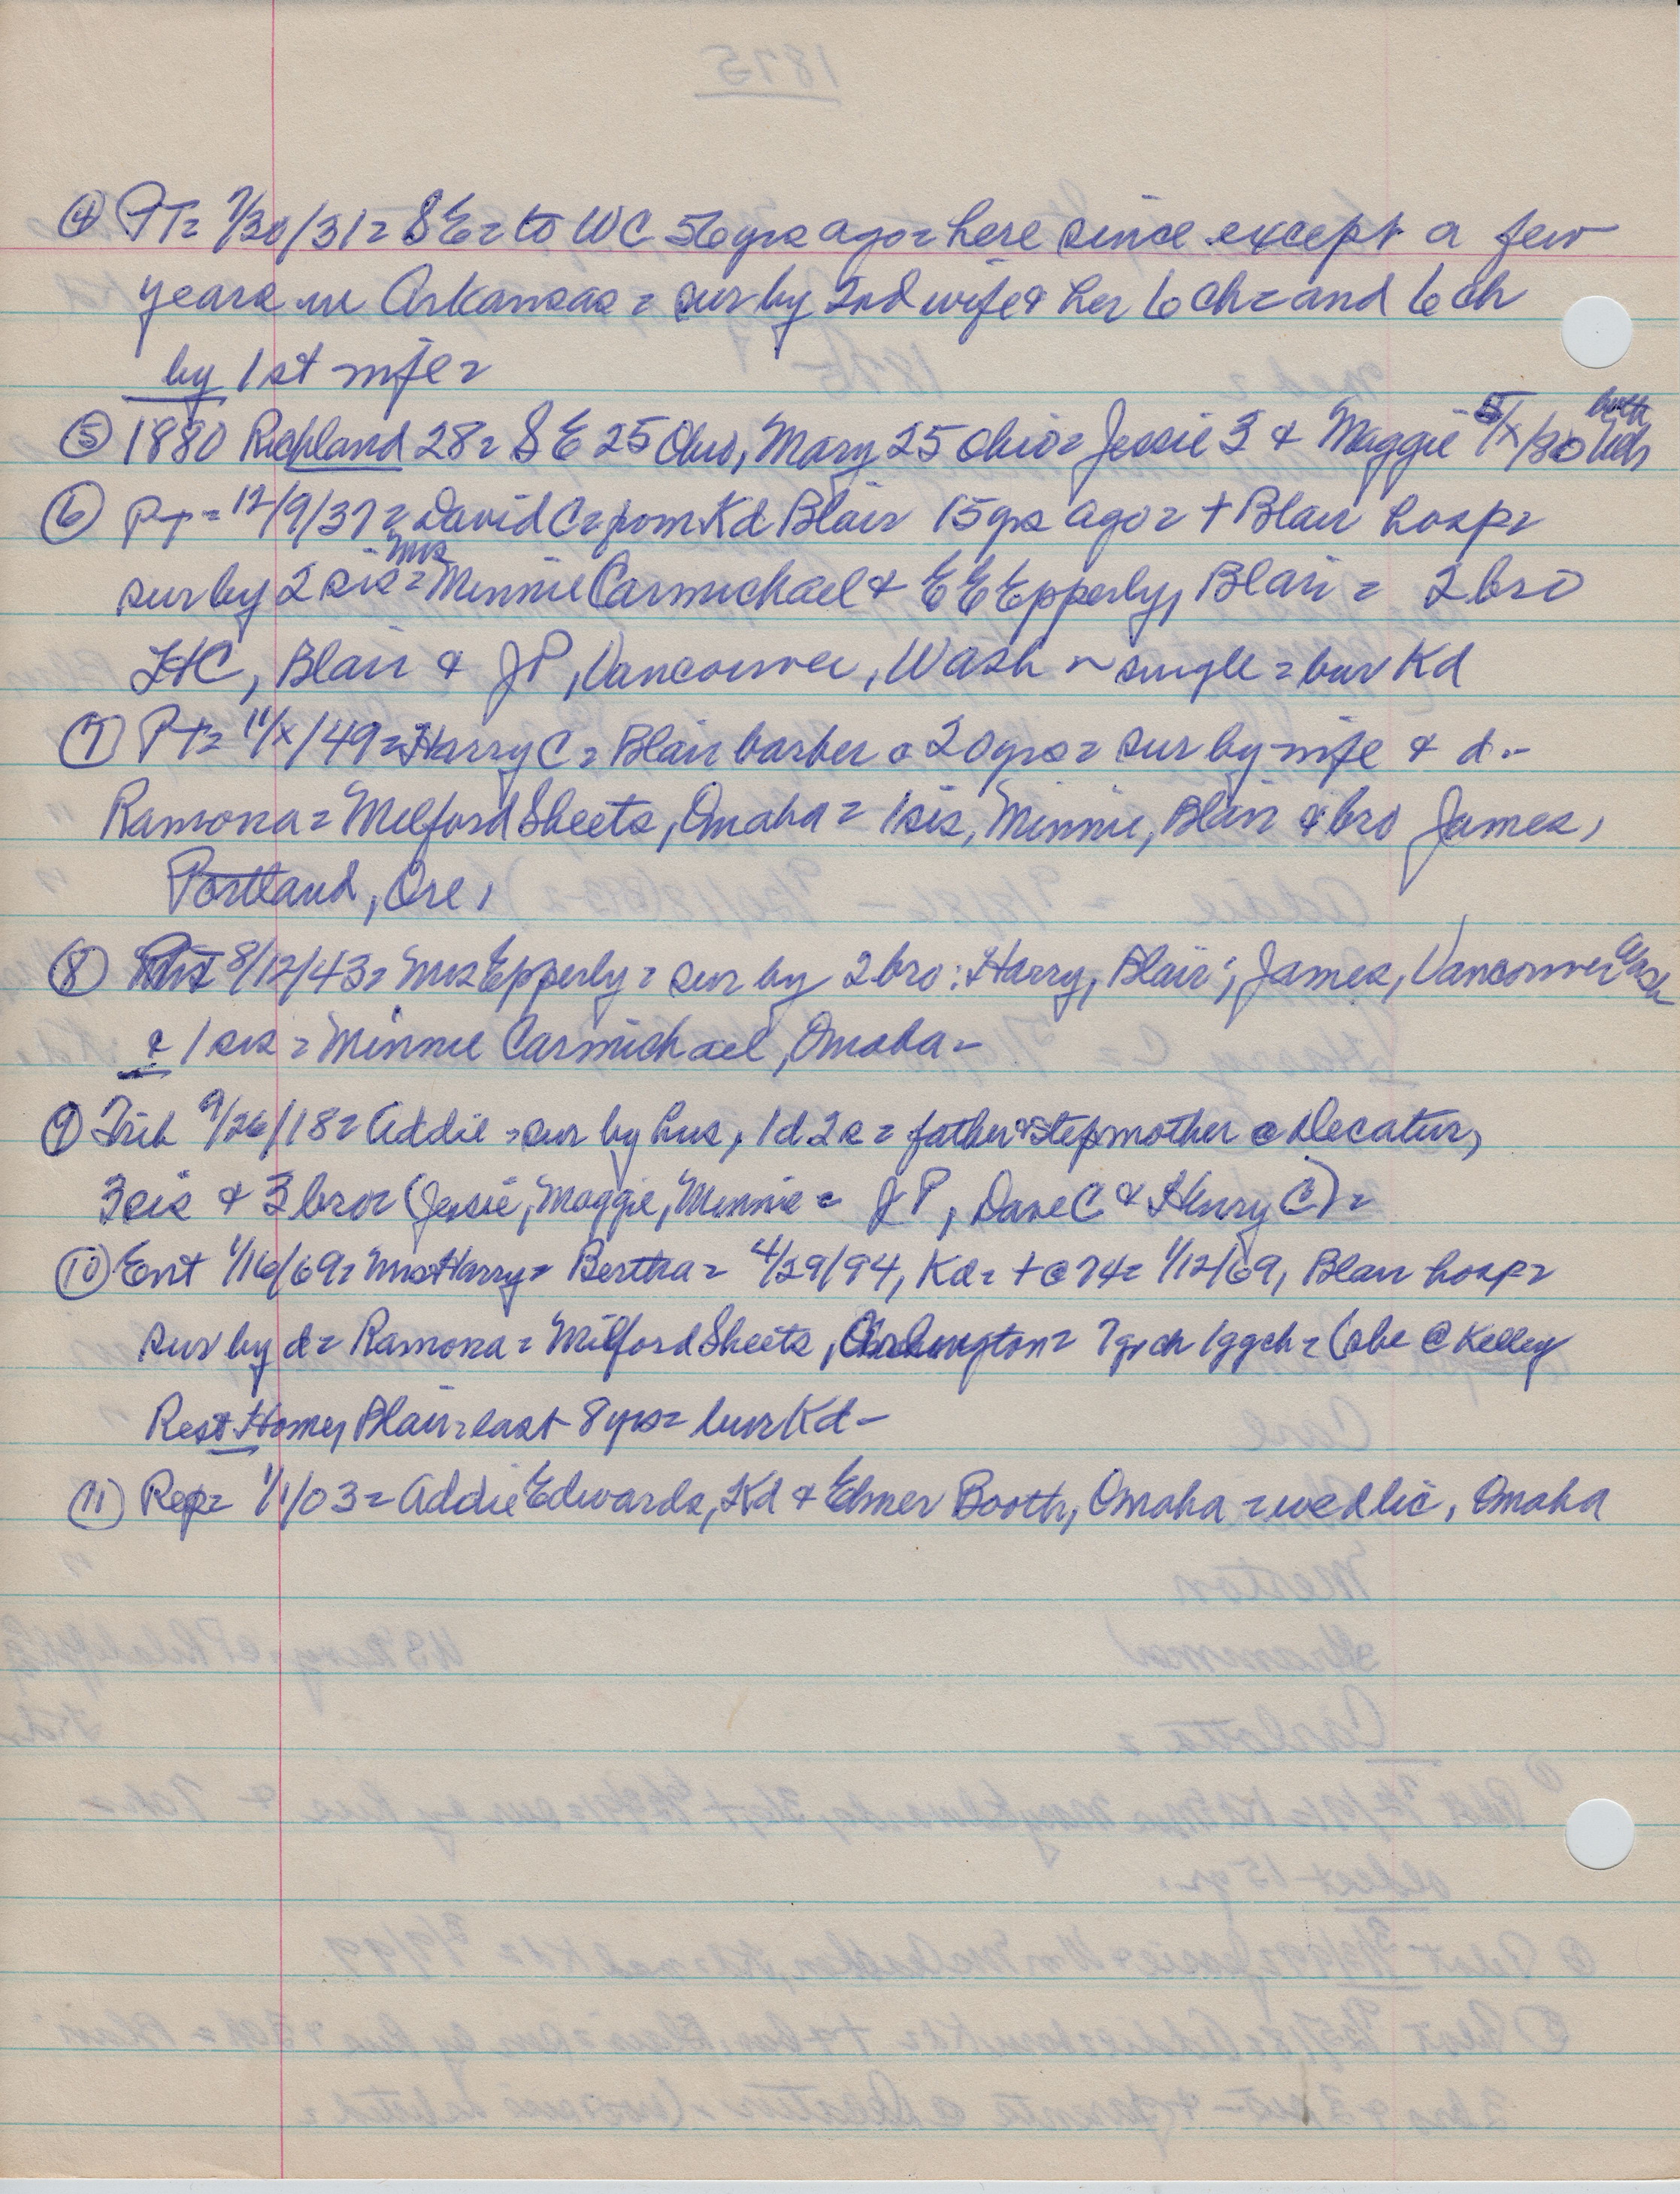 ④ PT= 7/30/31= S E= to WC 56yrs ago= here since except a few
years in Arkansas= sur by 2nd wife & her 6 ch= and 6 ch
by 1st wife=
⑤ 1880 Richland 28= S E 25 Ohio, Mary 25 Ohio= Jessie 3 & Maggie 5/x/80 both Neb
⑥ PT= 12/9/37= David C= from Kd Blair 15yrs ago= + Blair hosp=
sur by 2 sis= Mrs Minnie Carmichael & E E Epperly, Blair= 2 bro
HC, Blair & JP, Vancouver, Wash ~ single= bur Kd
⑦ PT= 11/x/49= Harry C= Blair barber c 20yrs= sur by wife & d.-
Ramona= Milford Sheets, Omaha= 1 sis, Minnie, Blair & bro James,
Portland, Ore,
⑧ 8/12/43= Mrs Epperly= sur by 2 bro: Harry, Blair; James, Vancouver Wash
& 1 sis= Minnie Carmichael, Omaha-
⑨ Trib 9/26/18= Addie= sur by hus, 1d 2s= father & stepmother @ Decatur,
3 sis & 3 bro= (Jessie, Maggie, Minnie= J P, Dave C & Henry C)=
⑩ Ent 1/16/69= Mrs Harry= Bertha= 4/29/94, Kd= + @ 74= 1/12/69, Blair hosp=
sur by d= Ramona= Milford Sheets, Arlington= 7 grch 1ggch= (she @ Kelley
Rest Home, Blair= last 8yrs= bur Kd-
⑪ Rep= 1/1/03= Addie Edwards, Kd & Elmer Booth, Omaha= wed lic, Omaha